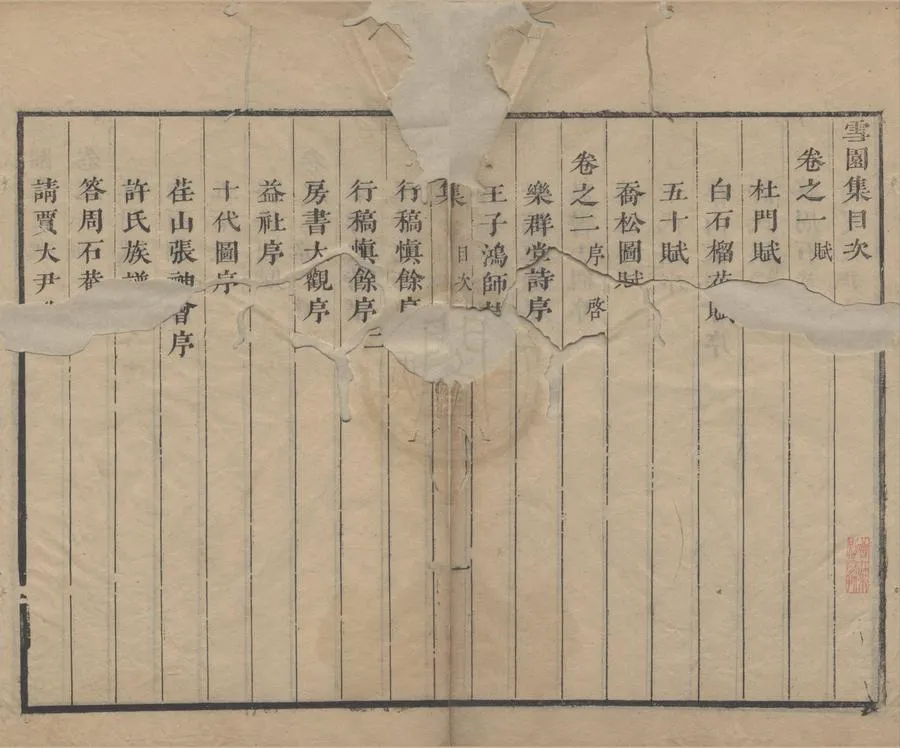 雪園集目次
卷之一 賦
杜門賦
白石榴花賦
五十賦
喬松圖賦
卷之二 序 啓
樂群堂詩序
王子鴻師
集 目次
行稿慎餘序
行稿慎餘序二
房書大觀序
益社序
十代圖序
茌山張神會序
許氏族譜
答周石菴
請賈大尹